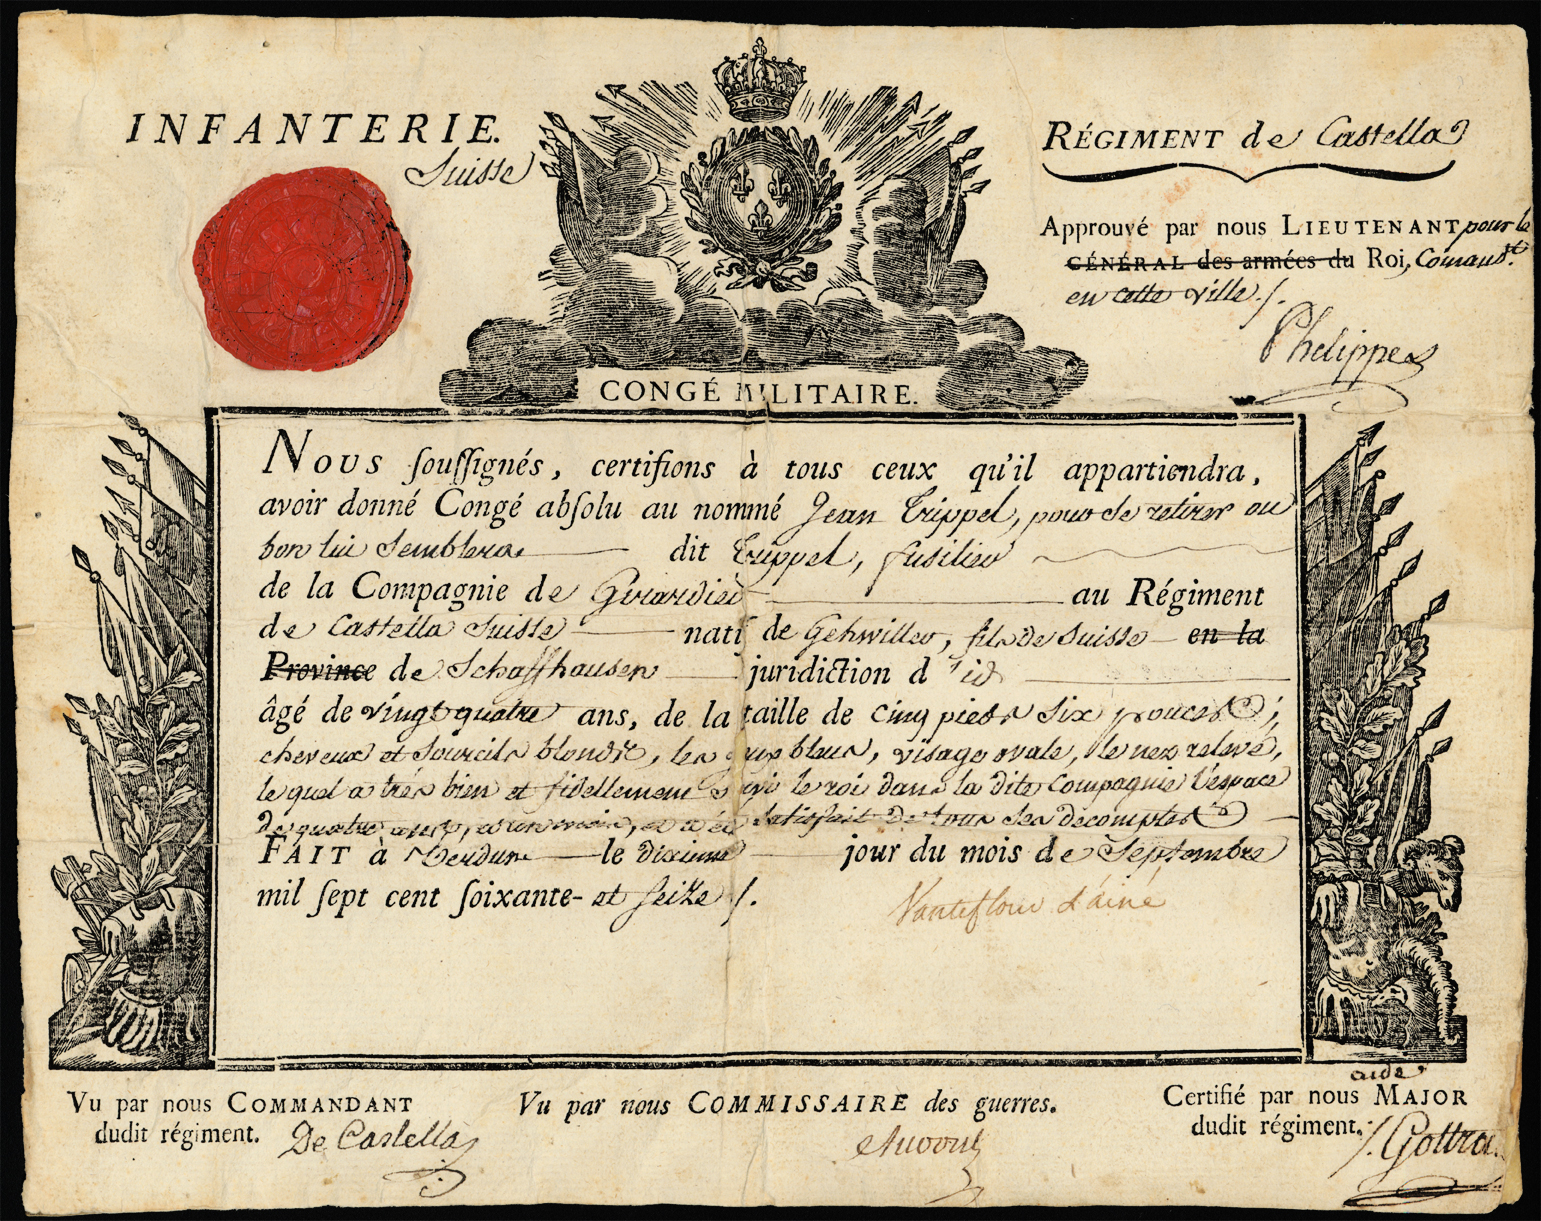 INFANTERIE.
Suisse
RÉGIMENT de Castella
Approuvé par nous LIEUTENANT pour le
GÉNÉRAL des armées du Roi, Comand.t
en cette ville ./.
Phelippes
CONGÉ MILITAIRE.
Nous ſouſſignés, certifions à tous ceux qu'il appartiendra,
avoir donné Congé abſolu au nommé Jean Trippel, pour se retirer ou
bon lui semblera dit Trippel, fusilier
de la Compagnie de Girardier au Régiment
de Castella Suisse natif de Gehwiller, fils de Suisse en la
Province de Schaffhausen juridiction d'id
âgé de vingt quatre ans, de la taille de cinq pieds six pouces ;
cheveux et sourcils blonds, les yeux bleus, visage ovale, le nez relevé,
le quel a très bien et fidellement servi le roi dans la dite Compagnie l'espace
de quatre ans, et a été satisfait de tous ses decomptes
FAIT à Verdun le dixieme jour du mois de Septembre
mil ſept cent ſoixante- et seize ./.
l'ainé
Vu par nous COMMANDANT
dudit régiment. De Castella
Vu par nous COMMISSAIRE des guerres.
aide
Certifié par nous MAJOR
dudit régiment. ./. Gottrau